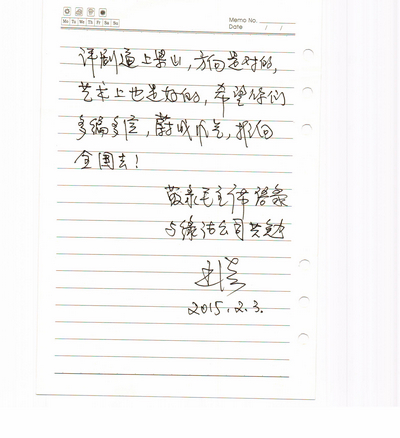 Memo No.
Mo Tu We Th Fr Sa Su
Date / /
评剧逼上梁山,方向是对的,
艺术上也是好的,希望你们
多编多演,蔚成风气,推向
全国去!
敬录毛主席语录
与公司共勉
2015.2.3.